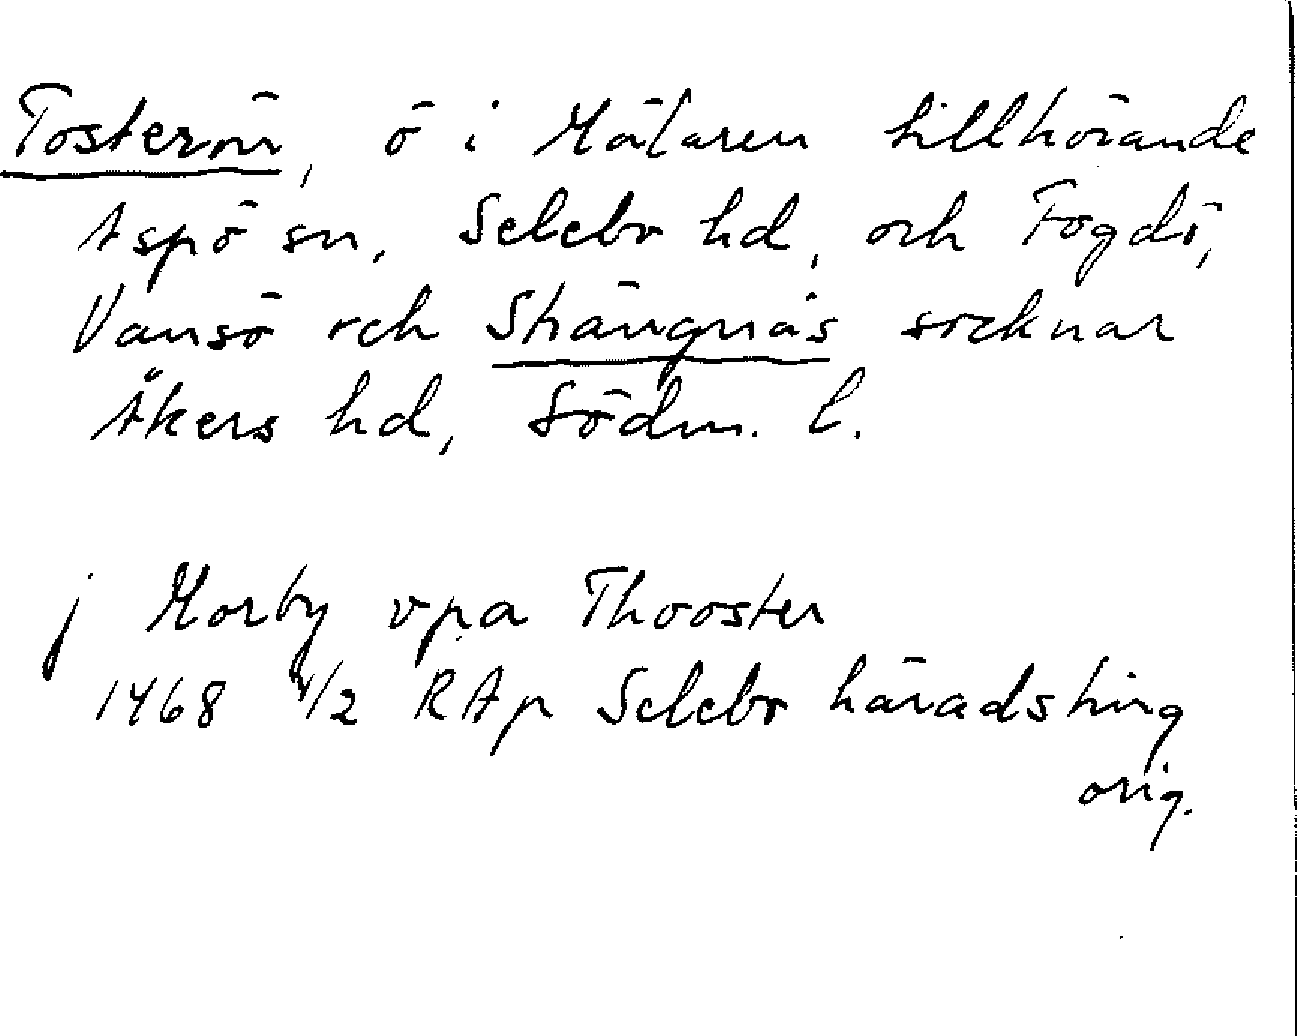 Tosterön, ö i Mälaren tillhörande
Aspö sn, Selebo hd, och Fogdö,
Vansö och Strängnäs socknar
Åkers hd, Södm. l.
j Morby vpa Thooster
1468 1/2 RAp Selebo häradsting
orig.